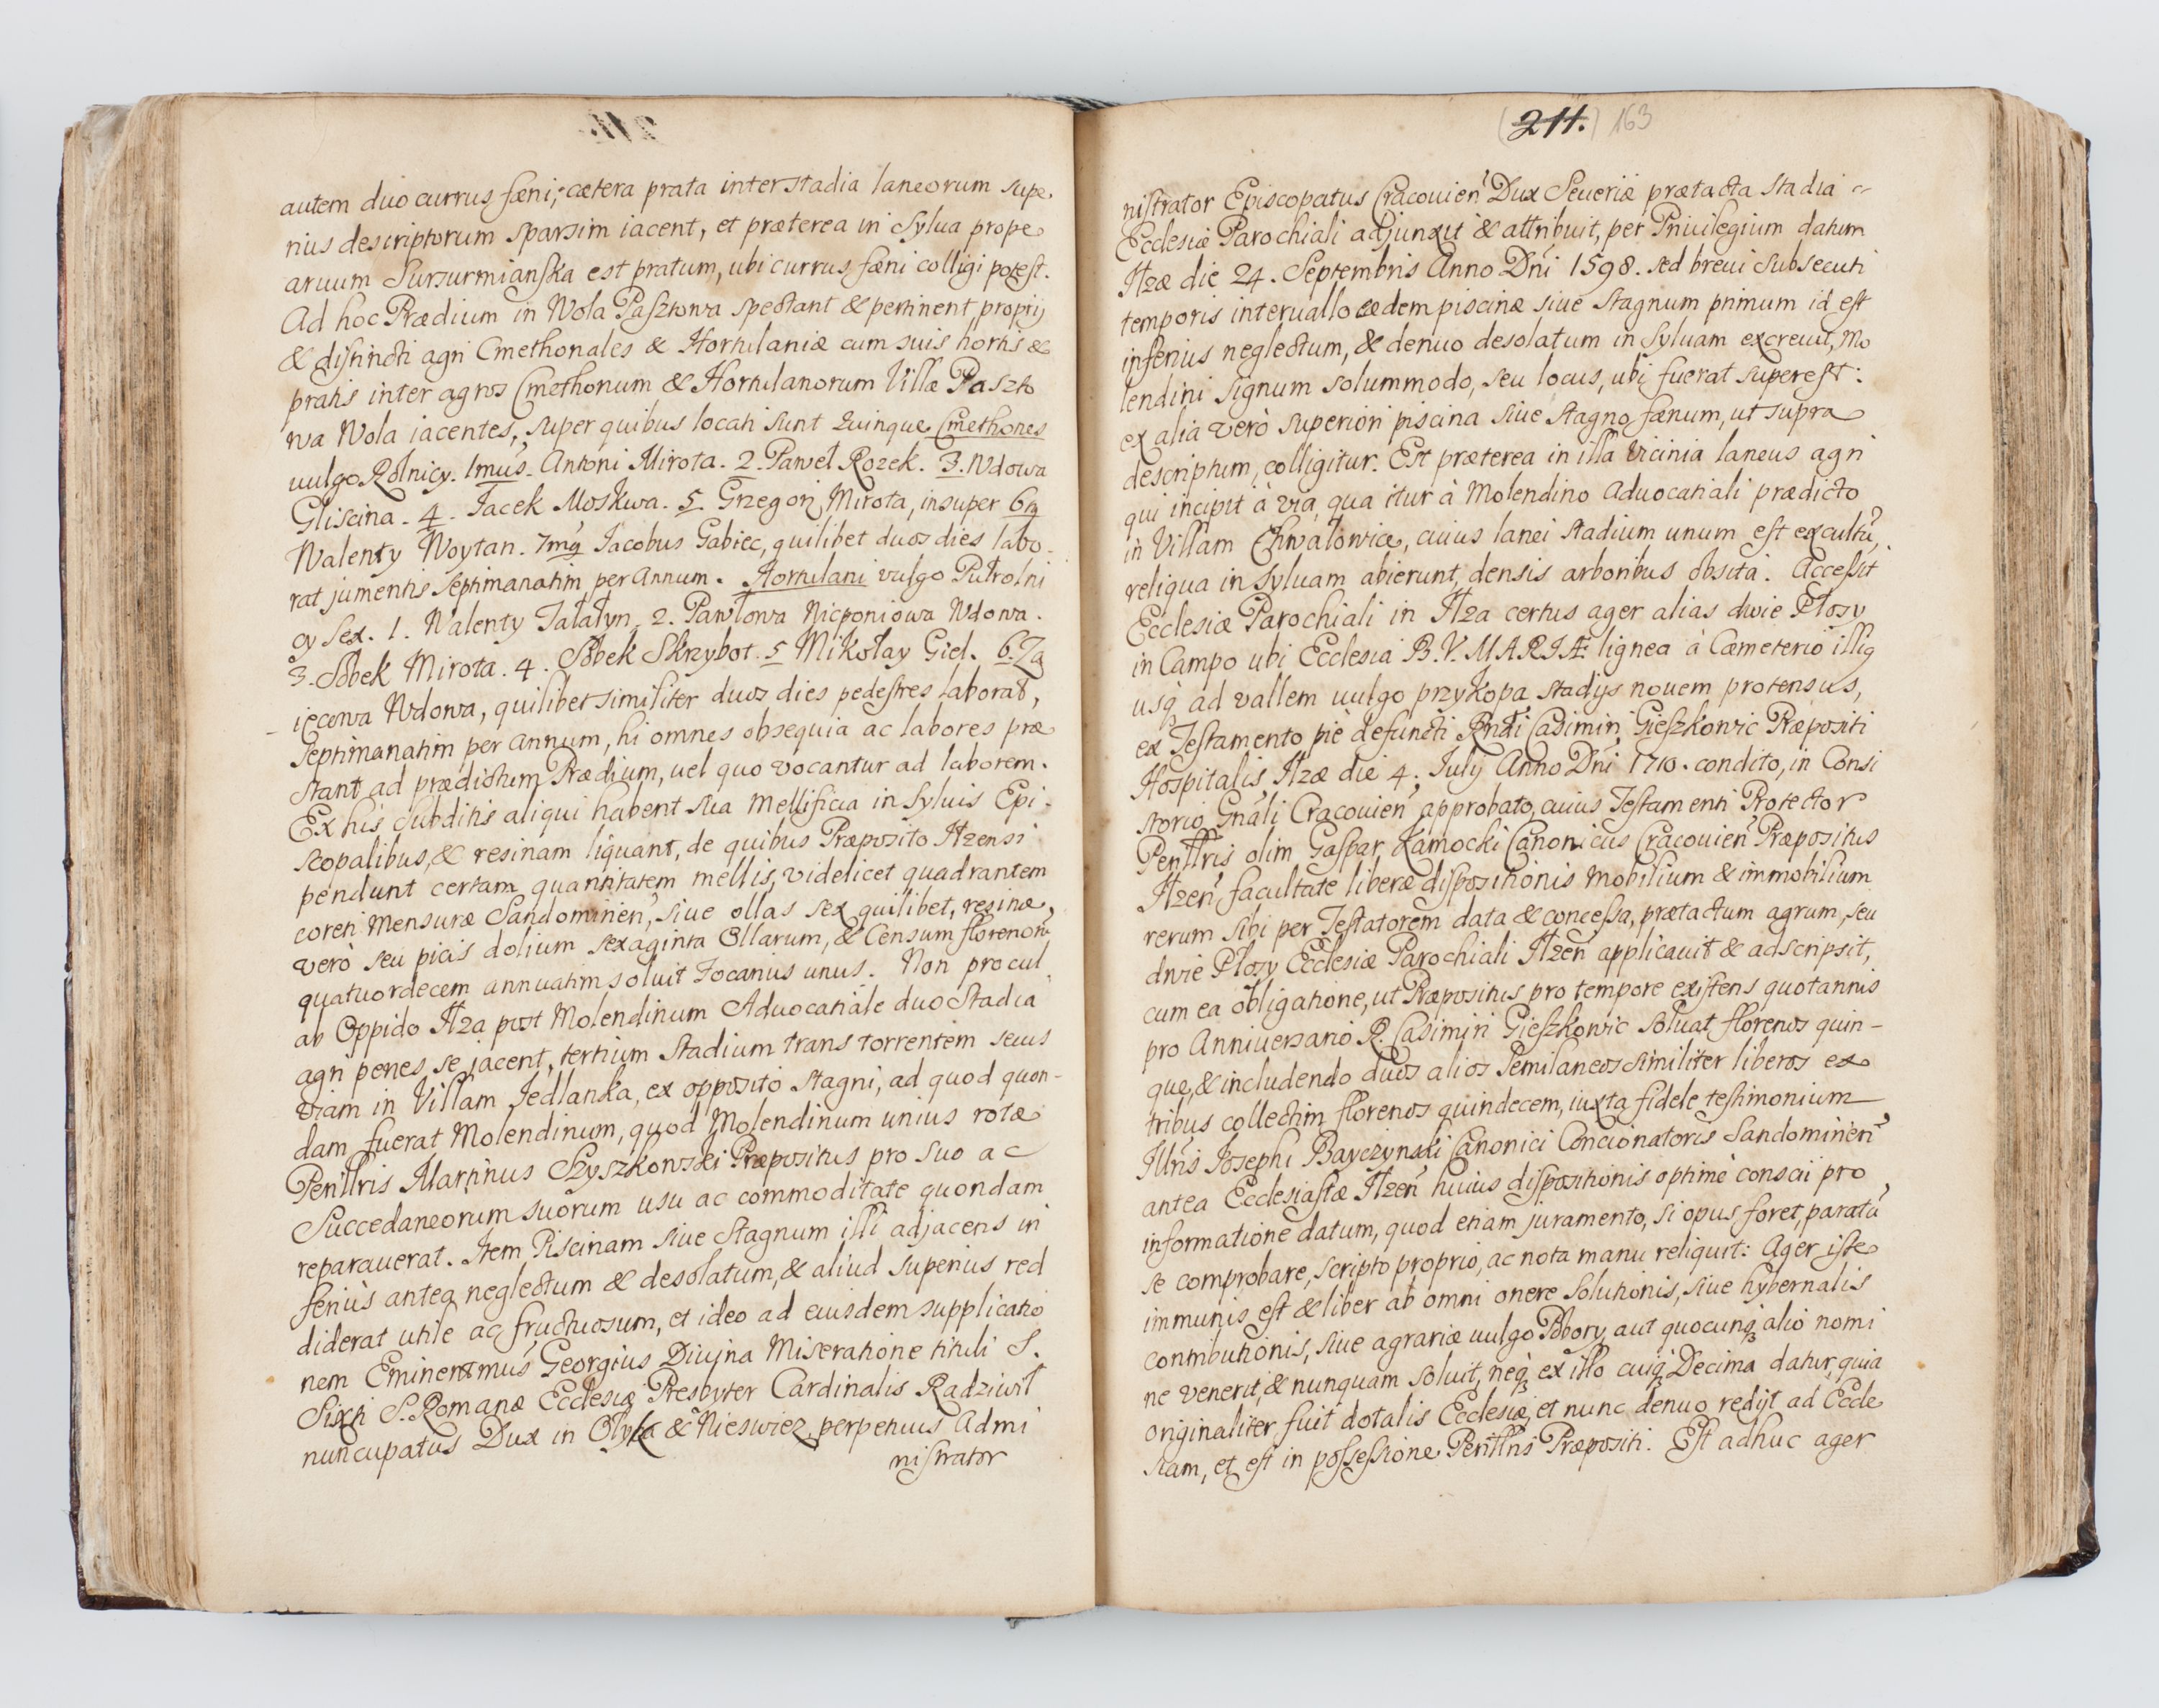 autem duo currus fæni; cætera prata inter stadia laneorum supe
rius descriptorum sparsim iacent, et præterea in Sylva prope
aruum Sursurmianska est pratum, ubi currus fæni colligi potest.
Ad hoc Prædium in Wola Pasztowa spectant & pertinent proprij
& distincti agri Cmethonales & Hortulaniæ cum suis hortis &
pratis inter agros Cmethonum & Hortulanorum Villæ Paszto
wa Wola iacentes, super quibus locati sunt quinque Cmethones
vulgo Rolnicy. 1mus. Antoni Mirota. 2. Paweł Rozek. 3. Wdowa
Gliscina. 4. Jacek Moskwa. 5 Grzegorz Mirota, insuper 6tg
Walenty Woytan. 7mg Jacobus Gabiec, quilibet duos dies labo-
rat jumentis septimanatim per Annum. Hortulani vulgo Pułrolni
cy Sex. 1. Walenty Tałałyn, 2. Pawłowa Nicponiowa Wdowa.
3. Sobek Mirota. 4. Sobek Skrzybot. 5 Mikołay Giel. 6. Za
iecowa Wdowa, quilibet similiter duos dies pedestres laborat,
septimanatim per Annum, hi omnes obsequia ac labores præ
stant ad prædictum Prædium, uel quo vocantur ad laborem.
Ex his subditis aliqui habent sua Mellificia in Syluis Epi-
scopalibus, & resinam liquant, de quibus Præposito Ilzensi
pendunt certam quantitatem mellis, videlicet quadrantem
coreti Mensuræ Sandomirien, siue ollas sex quilibet, resinæ,
verò seu picis dolium sexaginta Ollarum, & Censum florenorū
quatuordecem annuatim soluit Focarius unus. Non procul
ab Oppido Ilza post Molendinum Aduocatiale duo Stadia
agri penes se jacent, tertium Stadium trans torrentem secus
viam in Villam Jedlanka, ex opposito Stagni, ad quod quon-
dam fuerat Molendinum, quod Molendinum unius rotæ
Perillris Martinus Szyszkowski Præpositus pro suo ac
Succedaneorum suorum usu ac commoditate quondam
reparauerat. Item Piscinam siue Stagnum illi adjacens in
feriùs antea neglectum & desolatum, & aliud superius red
diderat utile ac fructuosum, et ideo ad eiusdem supplicatio
nem Eminentmus Georgius Divina Miseratione tituli S.
Sixti S. Romanæ Ecclesiæ Presbyter Cardinalis Radziwił
nuncupatus Dux in Olyka & Nieswiez, perpetuus Admi
nistrator
(211.) 163
nistrator Episcopatus Cracouien Dux Seueriæ prætacta stadia
Ecclesiæ Parochiali adjunxit & attribuit, per Priuilegium datum
Ilzæ die 24. Septembris Anno Dni 1598. sed breui subsecuti
temporis interuallo eædem piscinæ siue Stagnum primum id est
inferius neglectum, & denuo desolatum in Syluam excreuit, Mo
lendini signum solummodo, seu locus, ubi fuerat superest:
ex alia verò superiori piscina siue stagno fænum, ut supra
descriptum, colligitur. Est præterea in illa vicinia laneus agri
qui incipit à via, qua itur à Molendino Aduocatiali prædicto
in Villam Chwałowice, cuius lanei stadium unum est excultū,
reliqua in Syluam abierunt, densis arboribus obsita. Accessit
Ecclesiæ Parochiali in Ilza certus ager alias dwie Płosy
in Campo ubi Ecclesia B. V. MARIÆ lignea à Cæmeterio illig
usq ad vallem vulgo przykopa, stadijs nouem protensus,
ex Testamento piè defuncti Rndi Casimiri Gieszkowic Præpositi
Hospitalis Ilzæ die 4. July Anno Dni 1710. condito, in Consi
storio Gnali Cracouien approbato, cuius Testamenti Protector
Perillris olim Gaspar Kamocki Canonicus Cracouien Præpositus
Ilzen facultate liberæ dispositionis mobilium & immobilium
rerum sibi per Testatorem data & concessa, prætactum agrum, seu
dwie Płosy Ecclesiæ Parochiali Ilzen applicauit & adscripsit,
cum ea obligatione, ut Præpositus pro tempore existens quotannis
pro Anniuersario R. Casimiri Gieszkowic soluat florenos quin-
que, & includendo duos alios Semilaneos similiter liberos ex
tribus collectim florenos quindecem, iuxta fidele testimonium
Illris Josephi Bayczynski Canonici Concionatoris Sandomirien
antea Ecclesiastæ Ilzen huius dispositionis optimè conscii pro
informatione datum, quod etiam juramento, si opus foret, paratū
se comprobare, scripto proprio, ac nota manu reliquit: Ager iste
immunis est & liber ab omni onere solutionis, siue hybernalis
contributionis, siue agrariæ vulgo Pobory, aut quocunq alio nomi
ne venerit, & nunquam soluit, neq ex illo cuiq Decima datur, quia
originaliter fuit dotalis Ecclesiæ, et nunc denuo redijt ad Eccle
siam, et est in possessione Perillris Præpositi. Est adhuc ager